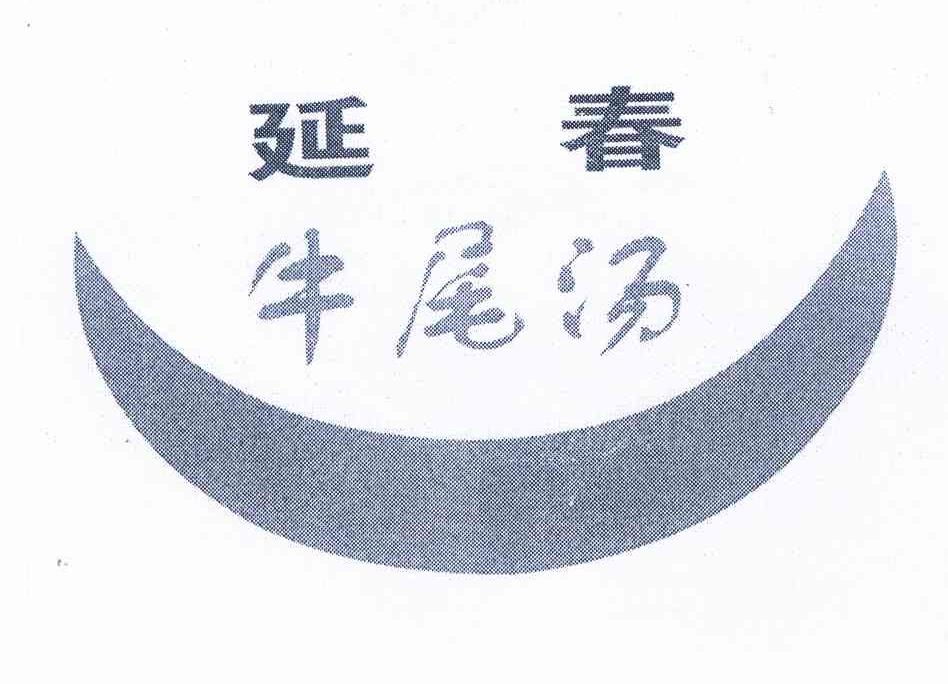 延春
牛尾汤